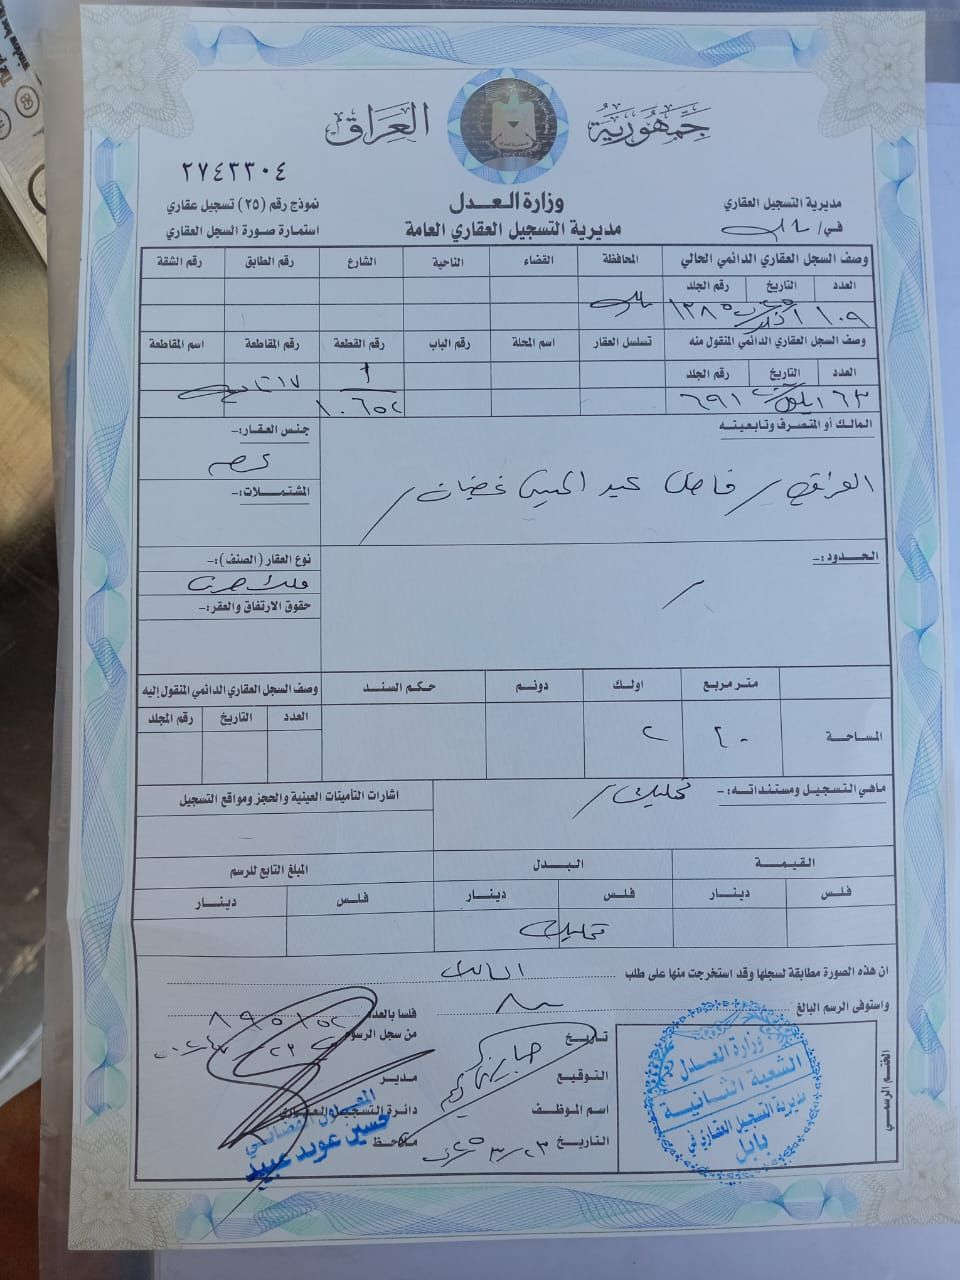 جمهورية العراق
٢٧٤٣٣٠٤
وزارة العدل
مديرية التسجيل العقاري العامة
مديرية التسجيل العقاري
في/ بابل
نموذج رقم (٢٥) تسجيل عقاري
استمارة صورة السجل العقاري
وصف السجل العقاري الدائمي الحالي المحافظة القضاء الناحية الشارع رقم الطابق رقم الشقة
العدد التاريخ رقم الجلد
بابل
١٠٩ ١٣٨٥
وصف السجل العقاري الدائمي المنقول منه تسلسل العقار اسم المحلة رقم الباب رقم القطعة رقم المقاطعة اسم المقاطعة
العدد التاريخ رقم الجلد
١ ١٧
٦٣ ايلول ٦٩١ ١٠٦٥٢
المالك أو المتصرف وتابعيته جنس العقار:-
العراقي / فاضل عبد الحسين
المشتملات:-
الحدود:- نوع العقار (الصنف):-
ملك صرف
حقوق الارتفاق والعقر:-
متر مربع اولك دونم حكم السند وصف السجل العقاري الدائمي المنقول إليه
العدد التاريخ رقم المجلد
المساحة ٢٠ ٢
ماهي التسجيل ومستنداته:- تمليك اشارات التأمينات العينية والحجز ومواقع التسجيل
القيمة البدل المبلغ التابع للرسم
فلس دينار فلس دينار فلس دينار
تمليك
ان هذه الصورة مطابقة لسجلها وقد استخرجت منها على طلب المالك
واستوفى الرسم البالغ فلسا بالعدد
تاريخ من سجل الرسوم
التوقيع مدير
اسم الموظف دائرة التسجيل العقاري
التاريخ ٢٣ ملاحظ
المعاون القضائي
حسين عويد عبيد
وزارة العدل
الشعبة الثانية
مديرية التسجيل العقاري في
بابل
الختم الرسمي